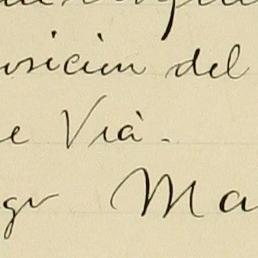 osicion del
e Vià.
gr Ma